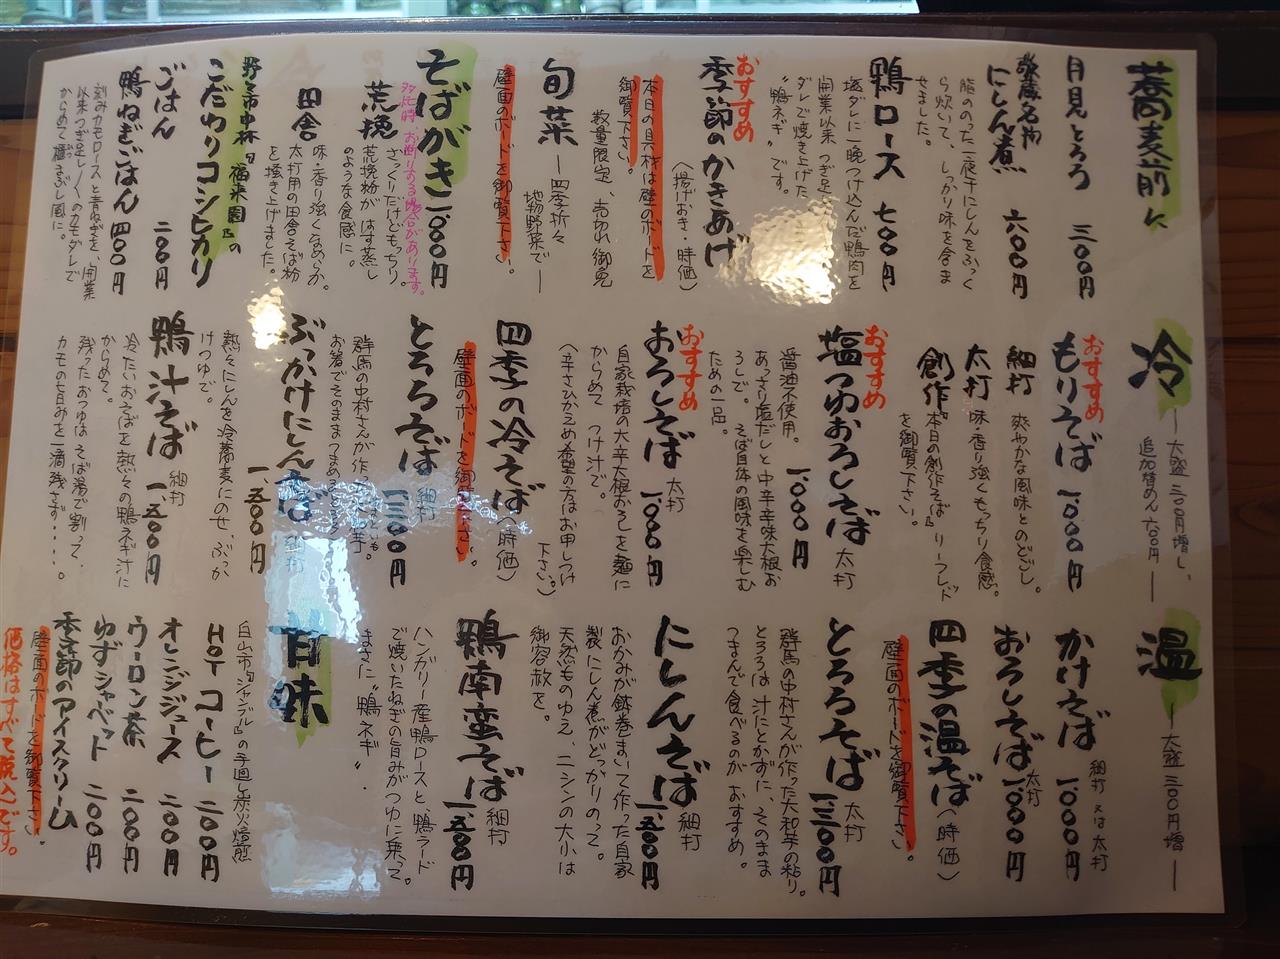 蕎麦前に
月見とろろ 三〇〇円
にしん煮 六〇〇円
脂ののった一夜干にしんをふっく
ら炊いて、しっかり味を含ま
せました。
鴨ロース 七〇〇円
塩ダレに一晩つけ込んだ鴨肉を
開業以来つぎ足し
ダレで焼き上げた
“鴨ネギ”です。
おすすめ
季節のかきあげ
（揚げおき・時価）
本日の具材は壁のボードを
御覧下さい。
数量限定、売切れ御免
旬菜
―四季折々
地物野菜で―
壁面のボードを御覧下さい。
そばがき 一、〇〇〇円
多忙時、お断りする場合があります。
荒挽
さっくりだけどもっちり。
荒挽粉がはす蒸し
のような食感に。
田舎
味・香り強くなめらか。
太打用の田舎そば粉
を掻き上げました。
野々市中林「福来園」の
こだわりコシヒカリ
ごはん 二〇〇円
鴨ねぎごはん 四〇〇円
刻みカモロースと青ねぎを、開業
以来つぎ足しのカモダレで
からめて櫃まぶし風に。
冷
―大盛 三〇〇円増し、
追加替めん 六〇〇円―
おすすめ
もりそば 一、〇〇〇円
細打 爽やかな風味とのどごし。
太打 味・香り強くもっちり食感。
創作 “本日の創作そば”リーフレッド
を御覧下さい。
おすすめ
塩つゆおろしそば 太打
一、〇〇〇円
醤油不使用。
あっさり塩だしと中辛辛味大根お
ろしで。そば自体の風味を楽しむ
ための一品。
おすすめ
おろしそば 太打
一、〇〇〇円
自家栽培の大辛大根おろしを麺に
からめて つけ汁で。
（辛さひかえめ希望の方はお申しつけ
下さい。）
四季の冷そば（時価）
壁面のボードを御覧下さい。
とろろそば 細打
一、三〇〇円
群馬の中村さんが作った大和芋。
ぶっかけにしんそば 細打
一、五〇〇円
熱々にしんを冷蕎麦にのせ、ぶっか
けつゆで。
鴨汁そば 細打
一、五〇〇円
冷たいおそばを熱々の鴨ネギ汁に
からめて。
残ったおつゆは そば湯で割って、
カモの旨みを一滴残さず・・・・。
温
―大盛 三〇〇円増―
かけそば 細打 又は 太打
一、〇〇〇円
おろしそば 太打
一、〇〇〇円
四季の温そば（時価）
壁面のボードを御覧下さい。
とろろそば 太打
一、三〇〇円
群馬の中村さんが作った大和芋の粘り。
とろろは 汁にとかずに、そのまま
つまんで食べるのが おすすめ。
にしんそば 細打
一、五〇〇円
おかみが鉢巻まいて作った自家
製にしん煮がどっかりのって。
天然ものゆえ、ニシンの大小は
御容赦を。
鴨南蛮そば 細打
一、五〇〇円
ハンガリー産鴨ロースと、鴨ラード
で焼いたねぎの旨みがつゆに乗って。
まさに“鴨ネギ”
甘味
白山市「ジャンブル」の手廻し炭火焙煎
HOTコーヒー 二〇〇円
オレンジジュース 二〇〇円
ウーロン茶 二〇〇円
ゆずシャーベット 二〇〇円
季節のアイスクリーム
壁面のボードを御覧下さい。
価格はすべて税込です。